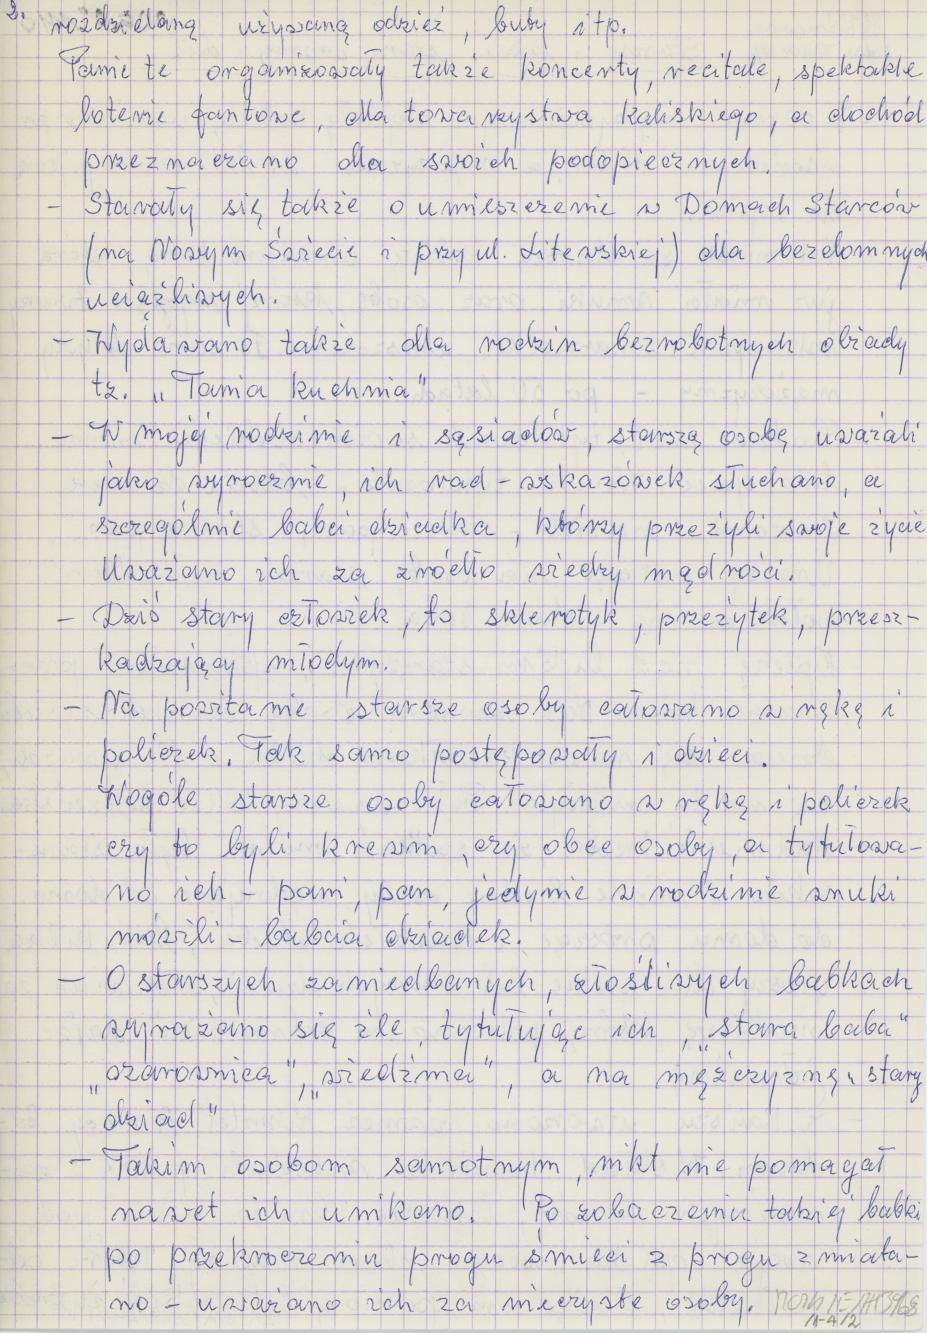 2.
rozdzielaną używaną odzież, buty i tp.
Panie te organizowały także koncerty, recitale, spektakle
loterie fantowe, dla towarzystwa Kaliskiego, a dochód
przeznaczano dla swoich podopiecznych.
- Starały się także o umieszczenie w Domach Starców
(na Nowym Świecie i przy ul. Litewskiej) dla bezdomnych
uciążliwych.
- Wydawano także dla rodzin bezrobotnych obiady
tz. „Tania kuchnia"
- W mojej rodzinie i sąsiadów, starszą osobę uważali
jako wyrocznie, ich rad - wskazówek słuchano, a
szczególnie babci dziadka, którzy przeżyli swoje życie
Uważano ich za źródło wiedzy mądrości.
- Dziś stary człowiek, to sklerotyk, przeżytek, przesz-
kadzający młodym.
- Na powitanie starsze osoby całowano w rękę i
policzek. Tak samo postępowały i dzieci.
Wogóle starsze osoby całowano w rękę i policzek
czy to byli krewni, czy obce osoby, a tytułowa-
no ich - pani, pan, jedynie w rodzinie wnuki
mówili - babcia dziadek.
- O starszych zaniedbanych, złośliwych babkach
wyrażano się źle, tytułując ich, „stara baba"
„czarownica", „wiedźma", a na mężczyznę „stary
dziad"
- Takim osobom samotnym, nikt nie pomagał
nawet ich unikano. Po zobaczeniu takiej babki
po przekroczeniu progu śmieci z progu zmiata-
no - uważano ich za nieczyste osoby.